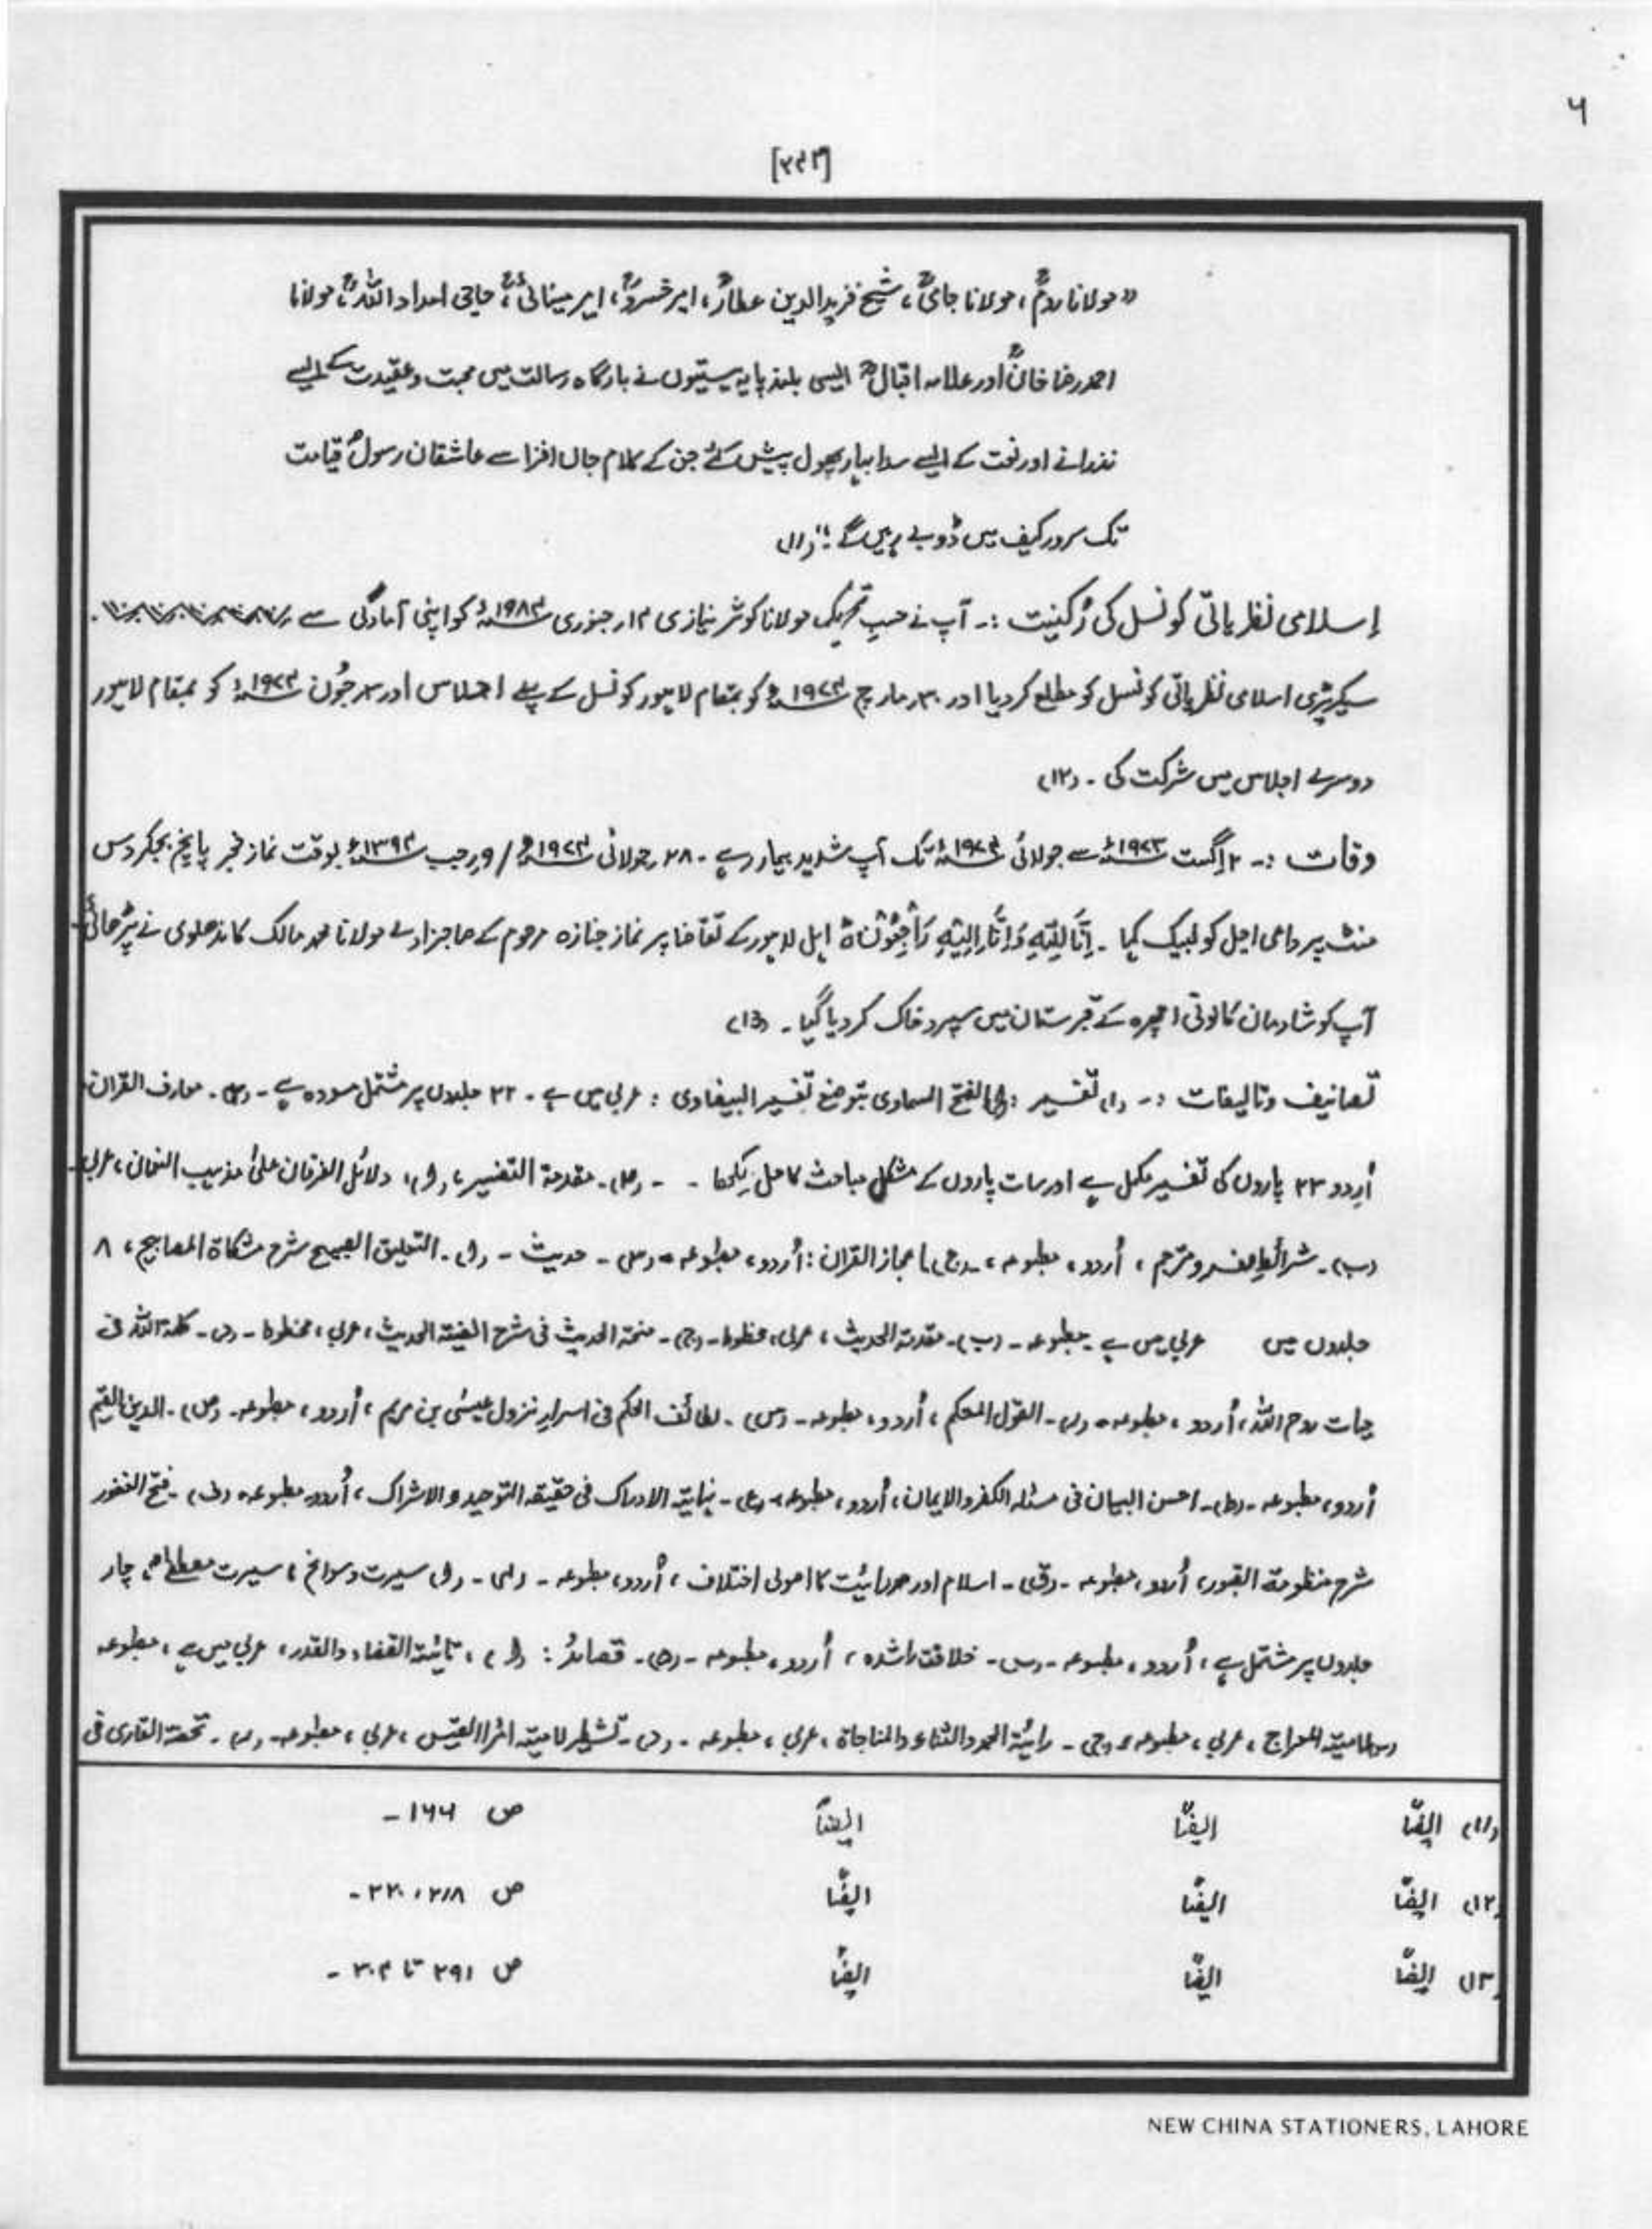 ۶
[۳۴۲]
"مولانا رومؒ، مولانا جامیؒ، شیخ فرید الدین عطارؒ، امیر خسروؒ، امیر مینائیؒ، حاجی امداد اللہؒ، مولانا
احمد رضا خانؒ اور علامہ اقبالؒ ایسی بلند پایہ ہستیوں نے بارگاہ رسالت میں محبت و عقیدت کے ایسے
نذرانے اور نعت کے ایسے سدا بہار پھول پیش کئے جن کے کلام جاں افزا سے عاشقان رسولؐ قیامت
تک سرور کیف میں ڈوبے رہیں گے"۔ (۱۱)
اسلامی نظریاتی کونسل کی رُکنیت :۔ آپ نے حسبِ تحریک مولانا کوثر نیازی ۱۴ر جنوری ۱۹۸۴ء کو اپنی آمادگی سے
سیکریٹری اسلامی نظریاتی کونسل کو مطلع کر دیا اور ۳۰ر مارچ ۱۹۷۴ء کو بمقام لاہور کونسل کے پہلے اجلاس اور ۳ر جُون ۱۹۷۴ء کو بمقام لاہور
دوسرے اجلاس میں شرکت کی۔ (۱۲)
وفات :۔ ۲ اگست ۱۹۷۳ء سے جولائی ۱۹۷۴ء تک آپ شدید بیمار رہے۔ ۲۸ر جولائی ۱۹۷۴ء / ۹ر رجب ۱۳۹۴ھ بوقت نماز فجر پانچ بجکر دس
منٹ پر داعی اجل کو لبیک کہا۔ اِنَّا لِلّٰہِ وَ اِنَّا اِلَیْہِ رَاجِعُوْنَ ہ اہل لاہور کے تقاضا پر نماز جنازہ مرحوم کے صاحبزادے مولانا محمد مالک کاندھلوی نے پڑھائی۔
آپ کو شادمان کالونی اچھرہ کے قبرستان میں سپرد خاک کر دیا گیا۔ (۱۳)
تصانیف و تالیفات :۔ (۱) تفسیر : (ا) الفتح السماوی بتوضیح تفسیر البیضاوی : عربی میں ہے۔ ۲۲ جلدوں پر مشتمل مسودہ ہے۔ معارف القرآن،
اُردو ۲۳ پاروں کی تفسیر مکمل ہے اور سات پاروں کے مشکل مباحث کا حل لکھا - - مقدمۃ التفسیر، (ا)، دلائل الفرقان علیٰ مذہب النعمان، عربی۔
(ب)۔ شرائط مفسر و مترجم، اُردو، مطبوعہ، (ج) اعجاز القرآن : اُردو، مطبوعہ۔ حدیث - (ا)۔ التعلیق الصبیح شرح مشکاۃ المصابیح، ۸
جلدوں میں عربی میں ہے۔ مطبوعہ۔ (ب)۔ مقدمۃ الحدیث، عربی، مخطوط۔ (ج)۔ منحۃ الحدیث فی شرح الفیتہ الحدیث، عربی، مخطوط۔ (د)۔ کلمۃ اللہ فی
حیات روح اللہ، اُردو، مطبوعہ۔ (ر)۔ القول المحکم، اُردو، مطبوعہ۔ (س)۔ لطائف الحکم فی اسرار نزول عیسٰی بن مریم، اُردو، مطبوعہ۔ (ص)۔ الدین القیم
اُردو، مطبوعہ۔ (ط)۔ احسن البیان فی مسئلہ الکفر والایمان، اُردو، مطبوعہ۔ (ع)۔ نہایتہ الادراک فی حقیقہ التوحید والاشراک، اُردو، مطبوعہ۔ (ف)۔ فتح الغفور
شرح منظومۃ القبور، اُردو، مطبوعہ۔ (ق)۔ اسلام اور مرزائیت کا اصولی اختلاف، اُردو، مطبوعہ۔ (ا) سیرت و سوانح، سیرت مصطفٰےؐ، چار
جلدوں پر مشتمل ہے، اُردو، مطبوعہ۔ خلافت راشدہ، اُردو، مطبوعہ۔ قصائد : (ا)، تائیۃ القضاء والقدر، عربی میں ہے، مطبوعہ
لامیتہ المعراج، عربی، مطبوعہ، (ج)۔ رائیۃ الحمد والثناء والمناجاۃ، عربی، مطبوعہ۔ (د)۔ تشطیر لامیتہ امرا القیس، عربی، مطبوعہ۔ (ر)۔ تحفۃ القاری فی
(۱۱) ایضًا ایضًا ایضًا ص ۱۶۶ -
(۱۲) ایضًا ایضًا ایضًا ص ۲۱۸، ۲۲۰ -
(۱۳) ایضًا ایضًا ایضًا ص ۲۹۱ تا ۳۰۴ -
NEW CHINA STATIONERS, LAHORE